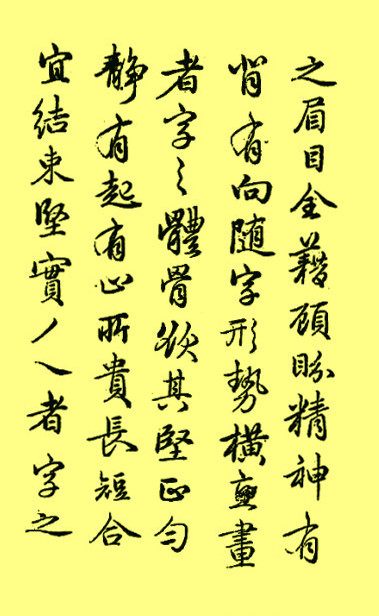 之眉目全藉顧盼精神有
背有向随字形勢橫直畫
者字之體骨欲其堅正勻
静有起有止所貴長短合
宜結束堅實丿乀者字之